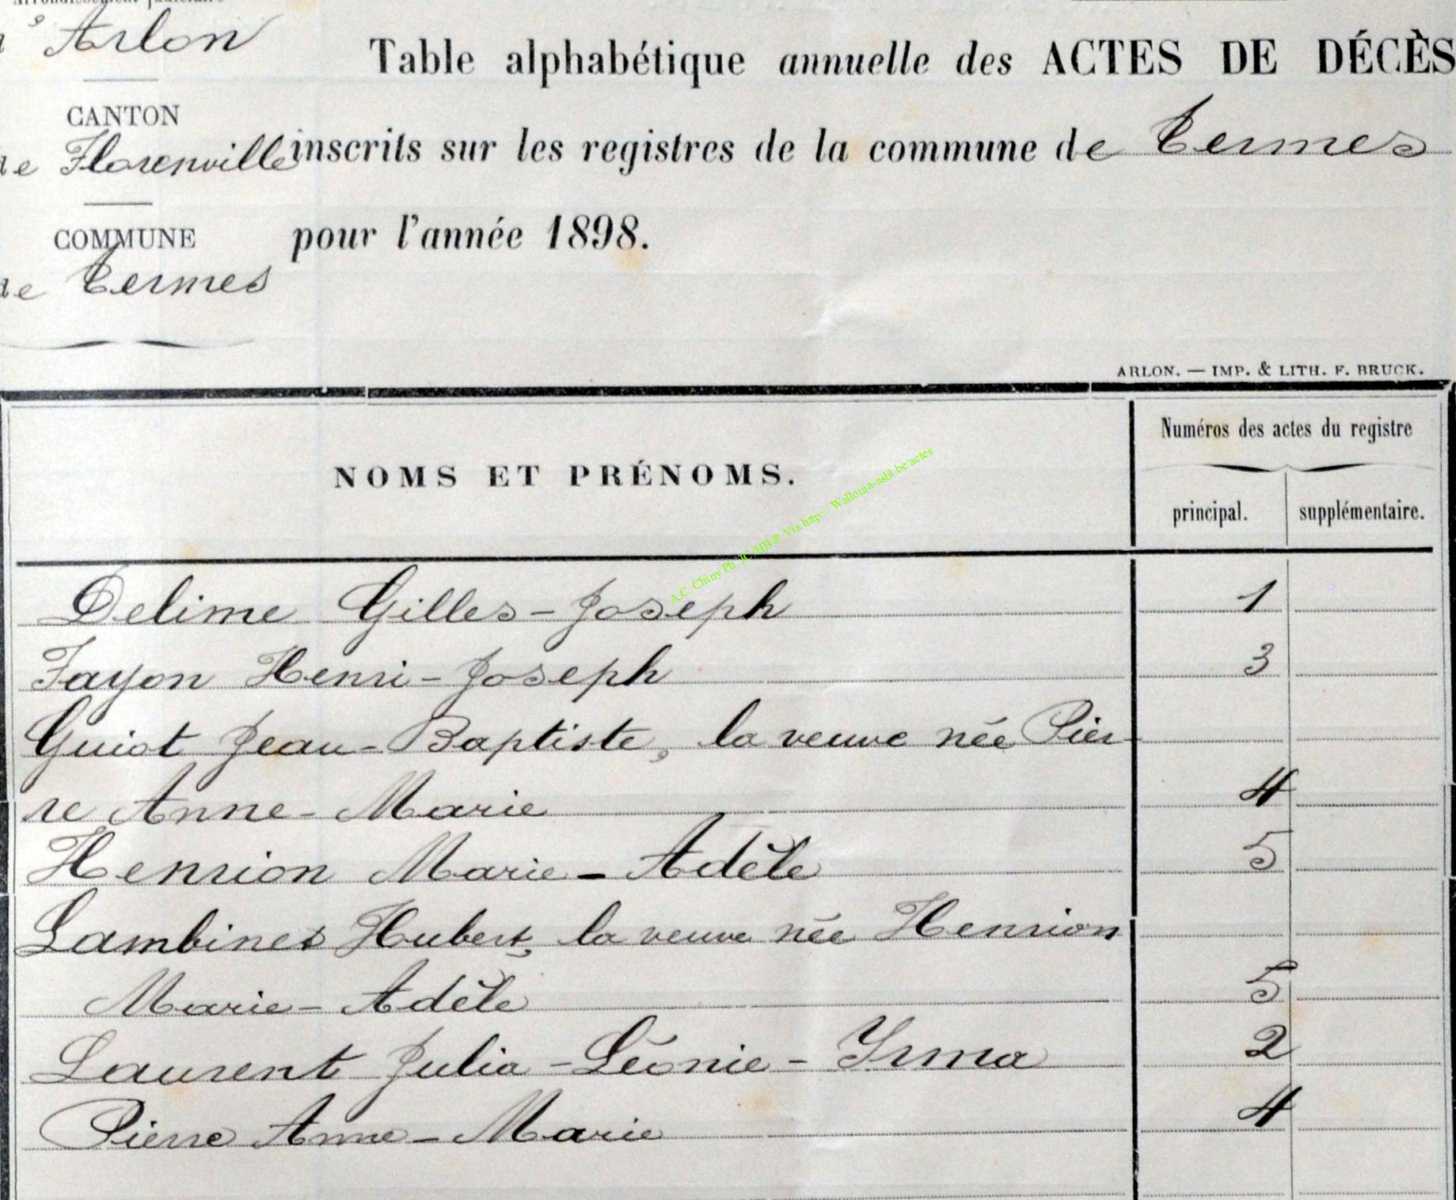 Arrondissement judiciaire
d'Arlon
CANTON
de Florenville
COMMUNE
de Termes
Table alphabétique annuelle des ACTES DE DÉCÈS
inscrits sur les registres de la commune de Termes
pour l'année 1898.
ARLON. — IMP. & LITH. F. BRUCK.
NOMS ET PRÉNOMS.
Numéros des actes du registre
principal. supplémentaire.
Delime Gilles-Joseph 1
Fayon Henri-Joseph 3
Guiot Jean-Baptiste, la veuve née Pier-
re Anne-Marie 4
Henrion Marie-Adèle 5
Lambinet Hubert, la veuve née Henrion
Marie-Adèle 5
Laurent Julia-Léonie-Irma 2
Pierre Anne-Marie 4